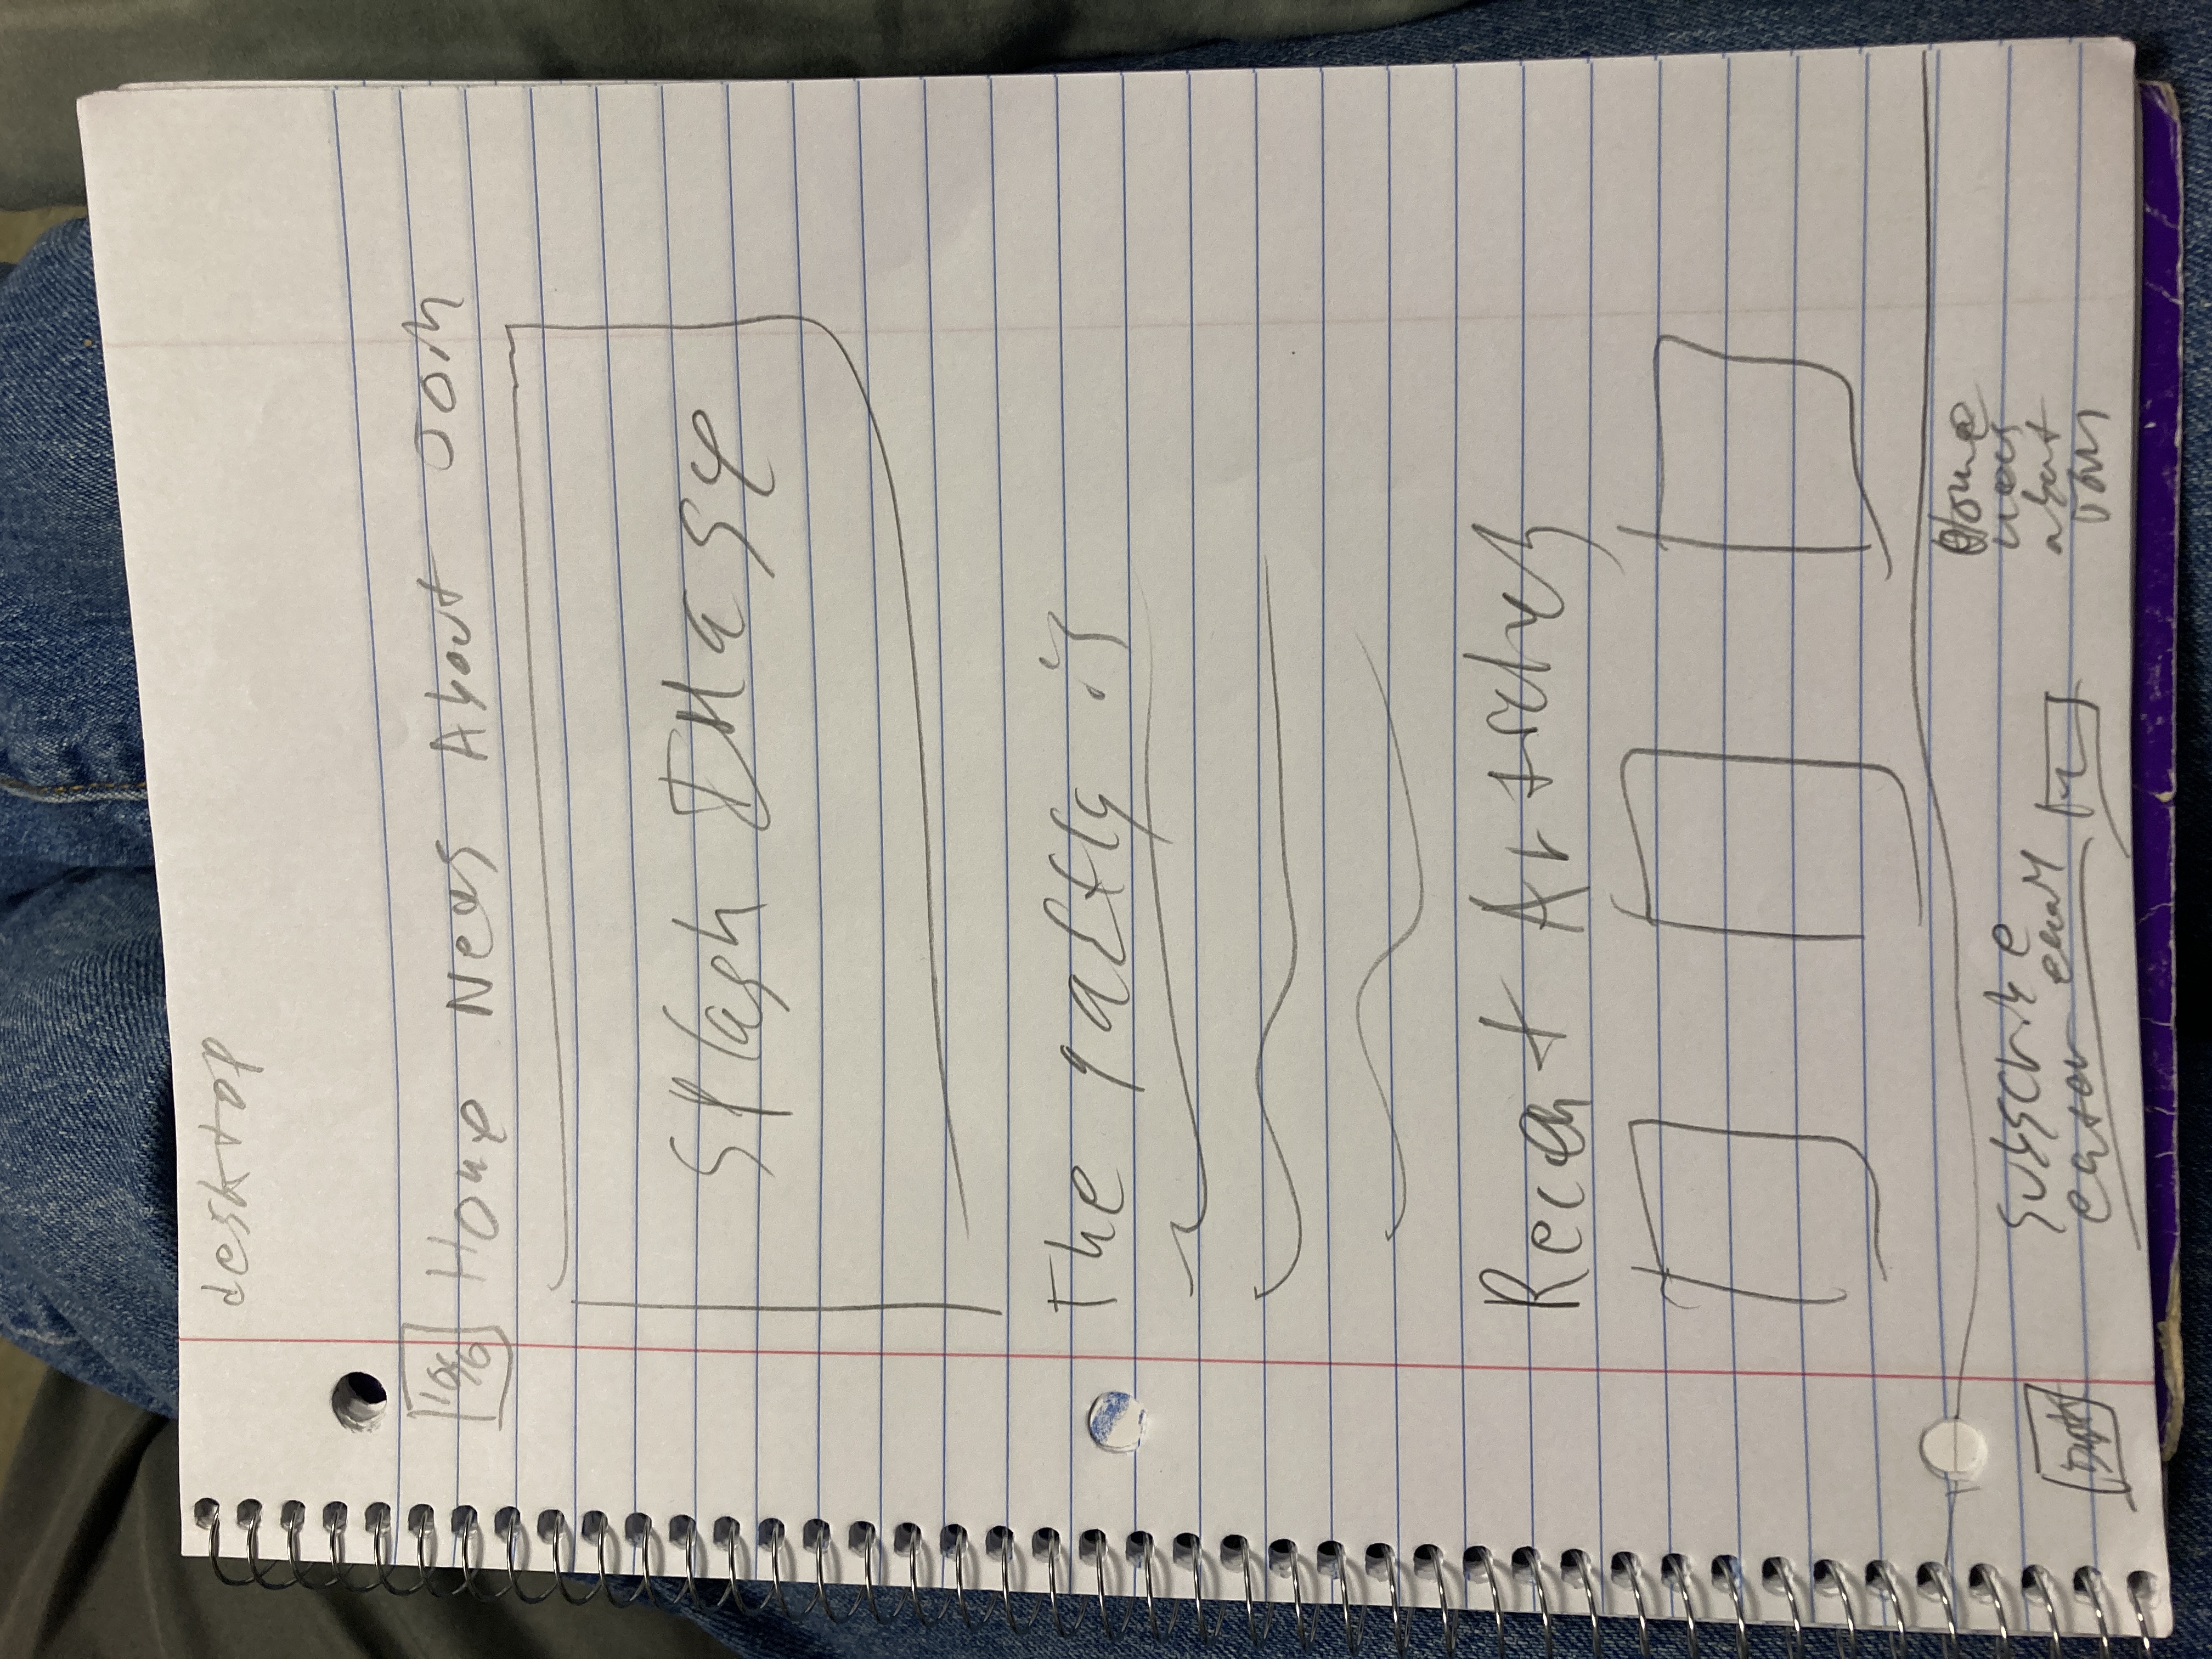 desktop
logo Home News About Join
Splash IMage
The gadfly is
Recent Articles
Subscribe
enter email
Home
news
about
Join